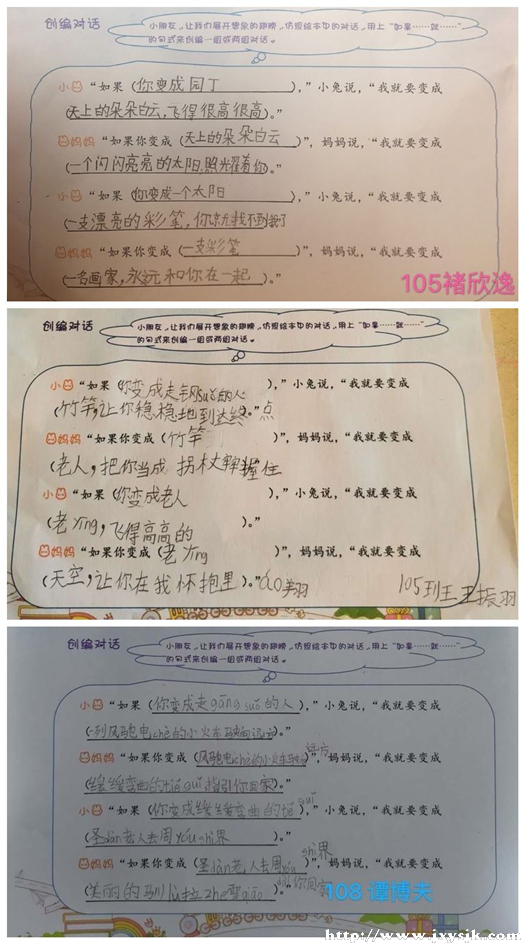 创编对话
小朋友,让我们展开想象的翅膀,仿照绘本中的对话,用上“如果……就……”
的句式来创编一组或两组对话。
小 “如果(你变成园丁),”小兔说,“我就要变成
(天上的朵朵白云,飞得很高很高)。”
妈妈“如果你变成(天上的朵朵白云)”,妈妈说,“我就要变成
(一个闪闪亮亮的太阳,照光耀着你)。”
小 “如果(你变成一个太阳),”小兔说,“我就要变成
(一支漂亮的彩笔,你就找不到我了)。”
妈妈“如果你变成(一支彩笔)”,妈妈说,“我就要变成
(一名画家,永远和你在一起)。”
105褚欣逸
创编对话
小朋友,让我们展开想象的翅膀,仿照绘本中的对话,用上“如果……就……”
的句式来创编一组或两组对话。
小 “如果(你变成走钢suǒ的人),”小兔说,“我就要变成
(竹竿,让你稳稳地到达终点)。”
妈妈“如果你变成(竹竿)”,妈妈说,“我就要变成
(老人,把你当成拐杖握住
小 “如果(你变成老人),”小兔说,“我就要变成
(老yīng,飞得高高的)。”
妈妈“如果你变成(老yīng)”,妈妈说,“我就要变成
(天空,让你在我怀抱里)。”áo翔
105班王振羽
创编对话
小朋友,让我们展开想象的翅膀,仿照绘本中的对话,用上“如果……就……”
的句式来创编一组或两组对话。
小 “如果(你变成走gāng suǒ的人),”小兔说,“我就要变成
(一列风驰电chè的小火车驶向远方)。”
妈妈“如果你变成(风驰电chè的小火车驶向远方)”,妈妈说,“我就要变成
(缓缓弯曲的tiě guǐ指引你回家)。”
小 “如果(你变成缓缓弯曲的tiě guǐ),”小兔说,“我就要变成
(圣dàn老人去周yóu shì界)。”
妈妈“如果你变成(圣dàn老人去周yóu shì界)”,妈妈说,“我就要变成
(美丽的驯lù拉zhe雪qiāo)。”
108 谭博夫
http://www.jxysjk.com